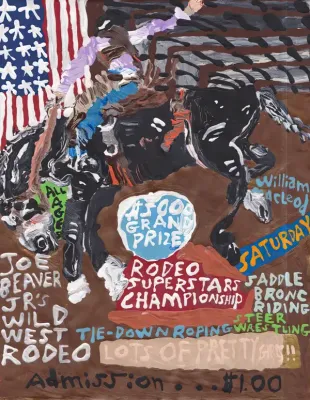 ALL
William
McLeod
$500
GRAND
PRIZE
SATURDAY
JOE
BEAVER
JR'S
WILD
WEST
RODEO
RODEO
SUPERSTARS
CHAMPIONSHIP
SADDLE
BRONC
RIDING
STEER
WRESTLING
TIE-DOWN ROPING
LOTS OF PRETTY GALS!!
Admission...$1.00